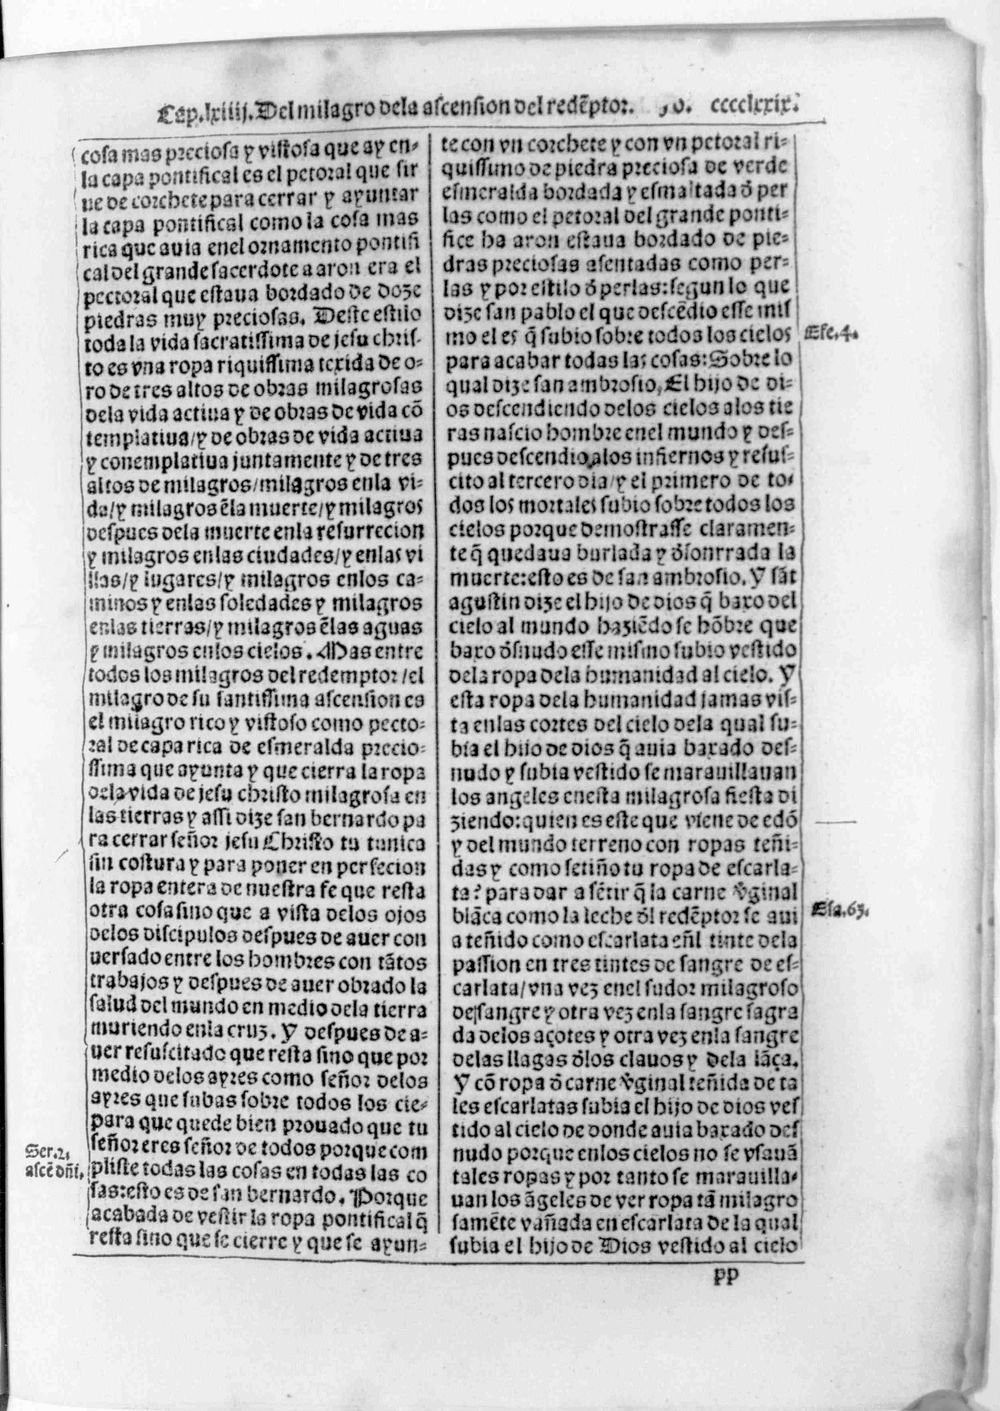 Cap.lxiiij. Del milagro dela ascension del redẽptor. Fo. cccclxxix.
cosa mas preciosa y vistosa que ay en-
la capa pontifical es el petoral que sir
ue de corchete para cerrar y ayuntar
la capa pontifical como la cosa mas
rica que auia enel ornamento pontifi
cal del grande sacerdote aaron era el
pectoral que estaua bordado de doze
piedras muy preciosas. Deste estilo
toda la vida sacratissima de jesu chris-
to es vna ropa riquissima texida de o-
ro de tres altos de obras milagrosas
dela vida actiua y de obras de vida cõ
templatiua/y de obras de vida actiua
y conemplatiua juntamente y de tres
altos de milagros/milagros enla vi-
da/y milagros ẽla muerte/y milagros
despues dela muerte enla resurrecion
y milagros enlas ciudades/y enlas vi
llas/y lugares/y milagros enlos ca-
minos y enlas soledades y milagros
enlas tierras/y milagros ẽlas aguas
y milagros enlos cielos. Mas entre
todos los milagros del redemptor/el
milagro de su santissima ascension es
el milagro rico y vistoso como pecto-
ral de capa rica de esmeralda precio-
ssima que ayunta y que cierra la ropa
dela vida de jesu christo milagrosa en
las tierras y assi dize san bernardo pa
ra cerrar señor jesu Christo tu tunica
sin costura y para poner en perfecion
la ropa entera de nuestra fe que resta
otra cosa sino que a vista delos ojos
delos discipulos despues de auer con
uersado entre los hombres con tãtos
trabajos y despues de auer obrado la
salud del mundo en medio dela tierra
muriendo enla cruz. Y despues de a-
uer resuscitado que resta sino que por
medio delos ayres como señor delos
ayres que subas sobre todos los cie-
para que quede bien prouado que tu
señor eres señor de todos porque com
pliste todas las cosas en todas las co
sas: esto es de san bernardo. Porque
acabada de vestir la ropa pontifical q̃
resta sino que se cierre y que se ayun-
Ser.2.
ascẽ dñi.
te con vn corchete y con vn petoral ri-
quissimo de piedra preciosa de verde
esmeralda bordada y esmaltada õ per
las como el petoral del grande ponti-
fice ha aron estaua bordado de pie-
dras preciosas asentadas como per-
las y por estilo õ perlas: segun lo que
dize san pablo el que descẽdio esse mis
mo el es q̃ subio sobre todos los cielos
para acabar todas las cosas: Sobre lo
qual dize san ambrosio, El hijo de di-
os descendiendo delos cielos alos tie
ras nascio hombre enel mundo y des-
pues descendio alos infiernos y resus-
cito al tercero dia/y el primero de to-
dos los mortales subio sobre todos los
cielos porque demostrasse claramen-
te q̃ quedaua burlada y õsonrrada la
muerte: esto es de san ambrosio. Y sãt
agustin dize el hijo de dios q̃ baxo del
cielo al mundo haziẽdo se hõbre que
baxo õsnudo esse mismo subio vestido
dela ropa dela humanidad al cielo. Y
esta ropa dela humanidad jamas vis-
ta enlas cortes del cielo dela qual su-
bia el hijo de dios q̃ auia baxado des-
nudo y subia vestido se marauillauan
los angeles enesta milagrosa fiesta di
ziendo: quien es este que viene de edõ
y del mundo terreno con ropas teñi-
das y como se tiño tu ropa de escarla-
ta? para dar a sẽtir q̃ la carne ṽginal
blãca como la leche õl redẽptor se aui
a teñido como escarlata eñl tinte dela
passion en tres tintes de sangre de es-
carlata/vna vez enel sudor milagroso
de sangre y otra vez enla sangre sagra
da delos açotes y otra vez enla sangre
delas llagas õlos clauos y dela lãça.
Y cõ ropa õ carne ṽginal teñida de ta
les escarlatas subia el hijo de dios ves
tido al cielo de donde auia baxado des
nudo porque enlos cielos no se vsauã
tales ropas y por tanto se marauilla-
uan los ãgeles de ver ropa tã milagro
samẽte vañada en escarlata de la qual
subia el hijo de Dios vestido al cielo
Efe.4.
Esa.63.
pp